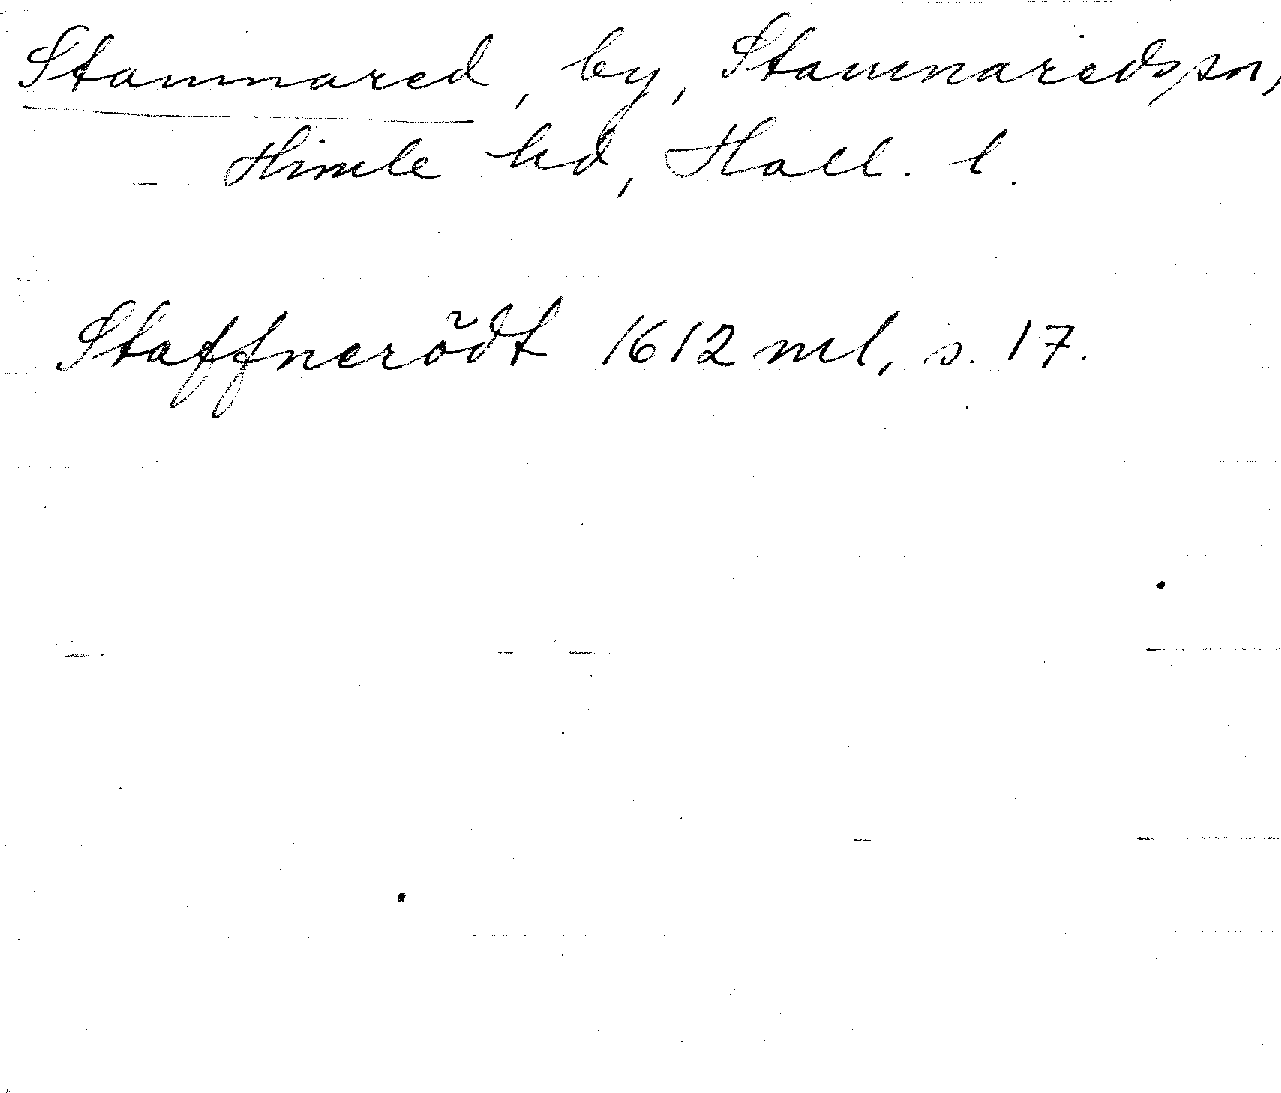 Stamnared, by, Stamnareds sn,
Himle hd, Hall. l.
Staffnerödt 1612 ml, s. 17.